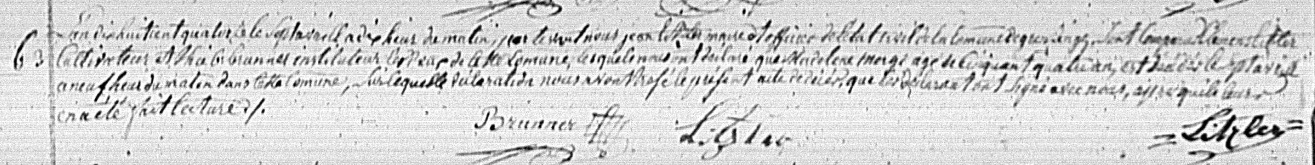 L'an dix huit cent quatorze le sept avril a dix heur du matin, par devant nous jean Litzler maire et officier de l'etat civil de la Comune de
63 Cultivateur et thiebe brunner instituteur de cette Comune, lesquels nous ont declaré que Madelene age de Cinquant quatre an, est decedé le sept avril
a neuf heur du matin dans cette Comune, sur laquelle declaration nous avont le present acte de deces, que les declarant ont signe avec nous, apres qu'il leur
en a été fait lecture ./.
Brunner Litzler Litzler